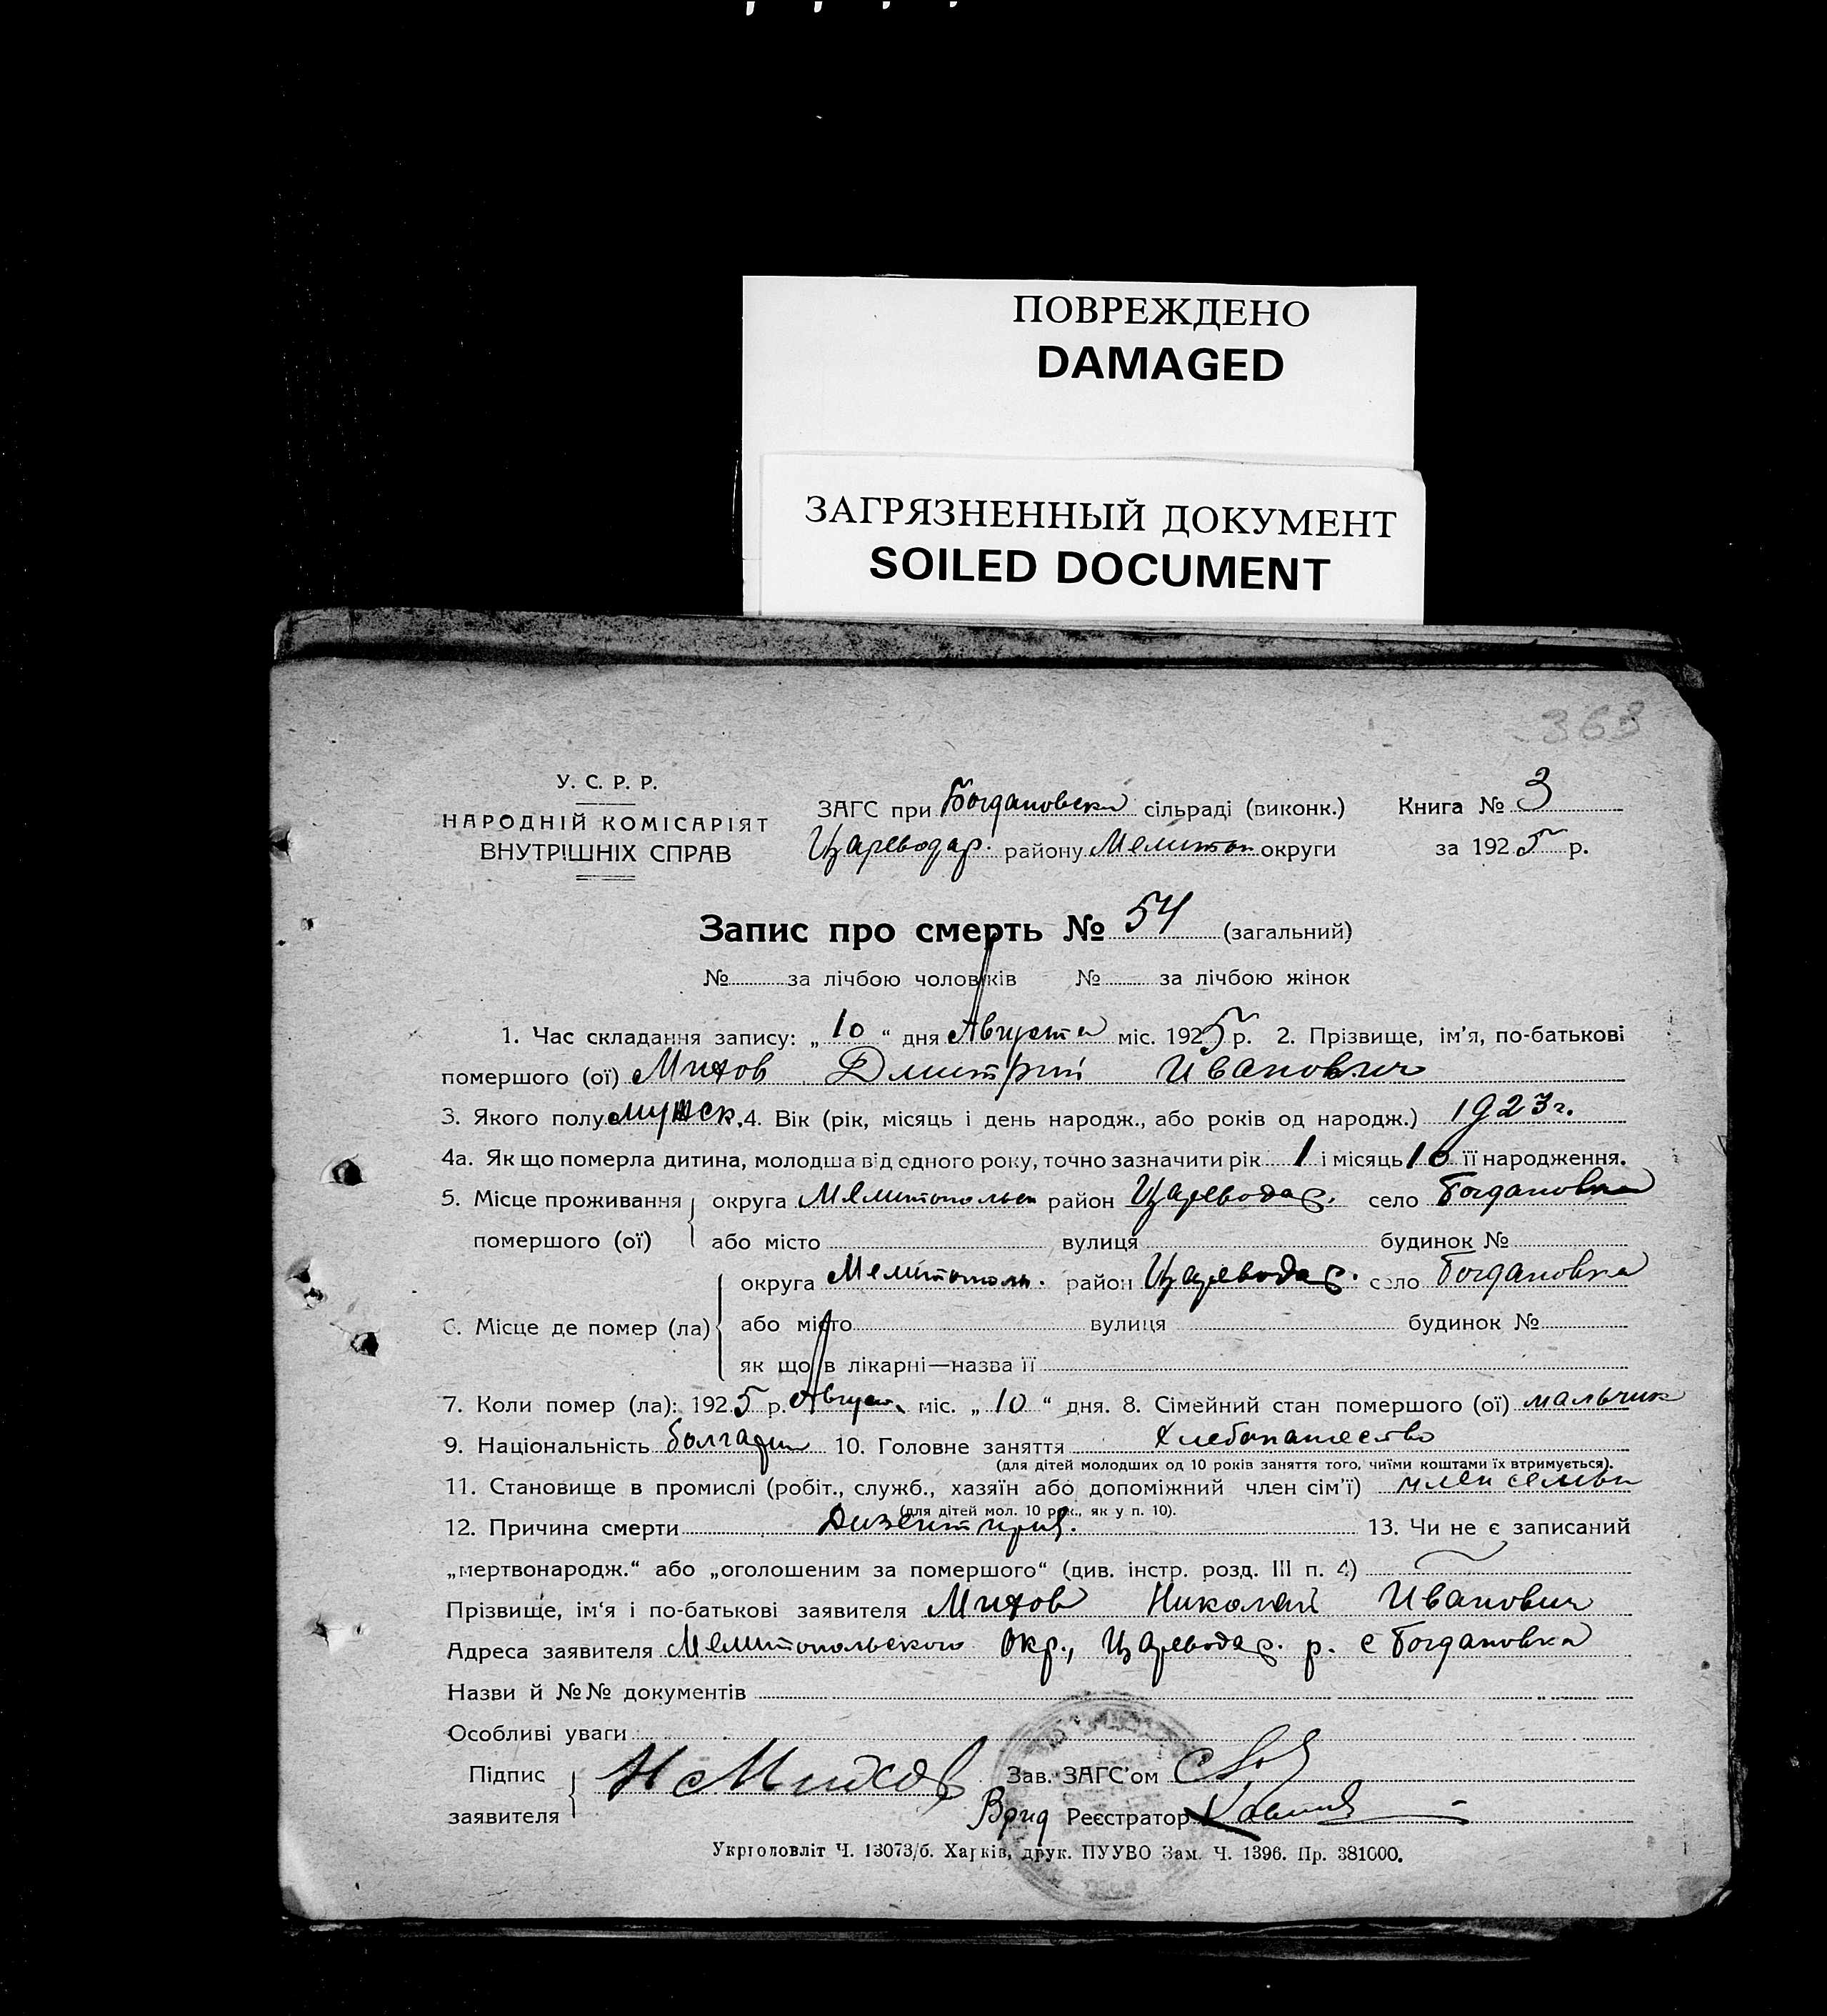 ПОВРЕЖДЕНО
DAMAGED
ЗАГРЯЗНЕННЫЙ ДОКУМЕНТ
SOILED DOCUMENT
363
У. С. Р. Р.
НАРОДНІЙ КОМІСАРІЯТ
ВНУТРІШНІХ СПРАВ
ЗАГС при Богдановски сільраді (виконк.) Книга № 3
Цареводар. району Мелитоп округи за 1925 р.
Запис про смерть № 54 (загальний)
№ за лічбою чоловіків № за лічбою жінок
1. Час складання запису: „10“ дня Августа міс. 1925 р. 2. Прізвище, ім'я, по-батькові
помершого (ої) Михов Дмитрий Иванович
3. Якого полу мужск. 4. Вік (рік, місяць і день народж., або років од народж.) 1923 г.
4а. Як що померла дитина, молодша від одного року, точно зазначити рік 1 і місяць 10 її народження.
5. Місце проживання округа Мелитопольск район Цареводар. село Богдановка
помершого (ої) або місто вулиця будинок №
округа Мелитополь. район Цареводар. село Богдановка
6. Місце де помер (ла) або місто вулиця будинок №
як що в лікарні—назва її
7. Коли помер (ла): 1925 р. Август. міс. „10“ дня. 8. Сімейний стан помершого (ої) мальчик
9. Національність болгарин 10. Головне заняття Хлебопашество
(для дітей молодших од 10 років заняття того, чиїми коштами їх втримується).
11. Становище в промислі (робіт., служб., хазяїн або допоміжний член сім'ї) член семьи
(для дітей мол. 10 рок., як у п. 10).
12. Причина смерти Дизентирия. 13. Чи не є записаний
„мертвонародж.“ або „оголошеним за помершого“ (див. інстр. розд. III п. 4)
Прізвище, ім'я і по-батькові заявителя Михов Николай Иванович
Адреса заявителя Мелитопольского окр., Цареводар. р. с Богдановка
Назви й №№ документів
Особливі уваги
Підпис Н Михов Зав. ЗАГС'ом
заявителя Врид Реєстратор
Укрголовліт Ч. 13073/б. Харків, друк. ПУУВО Зам. Ч. 1396. Пр. 381000.